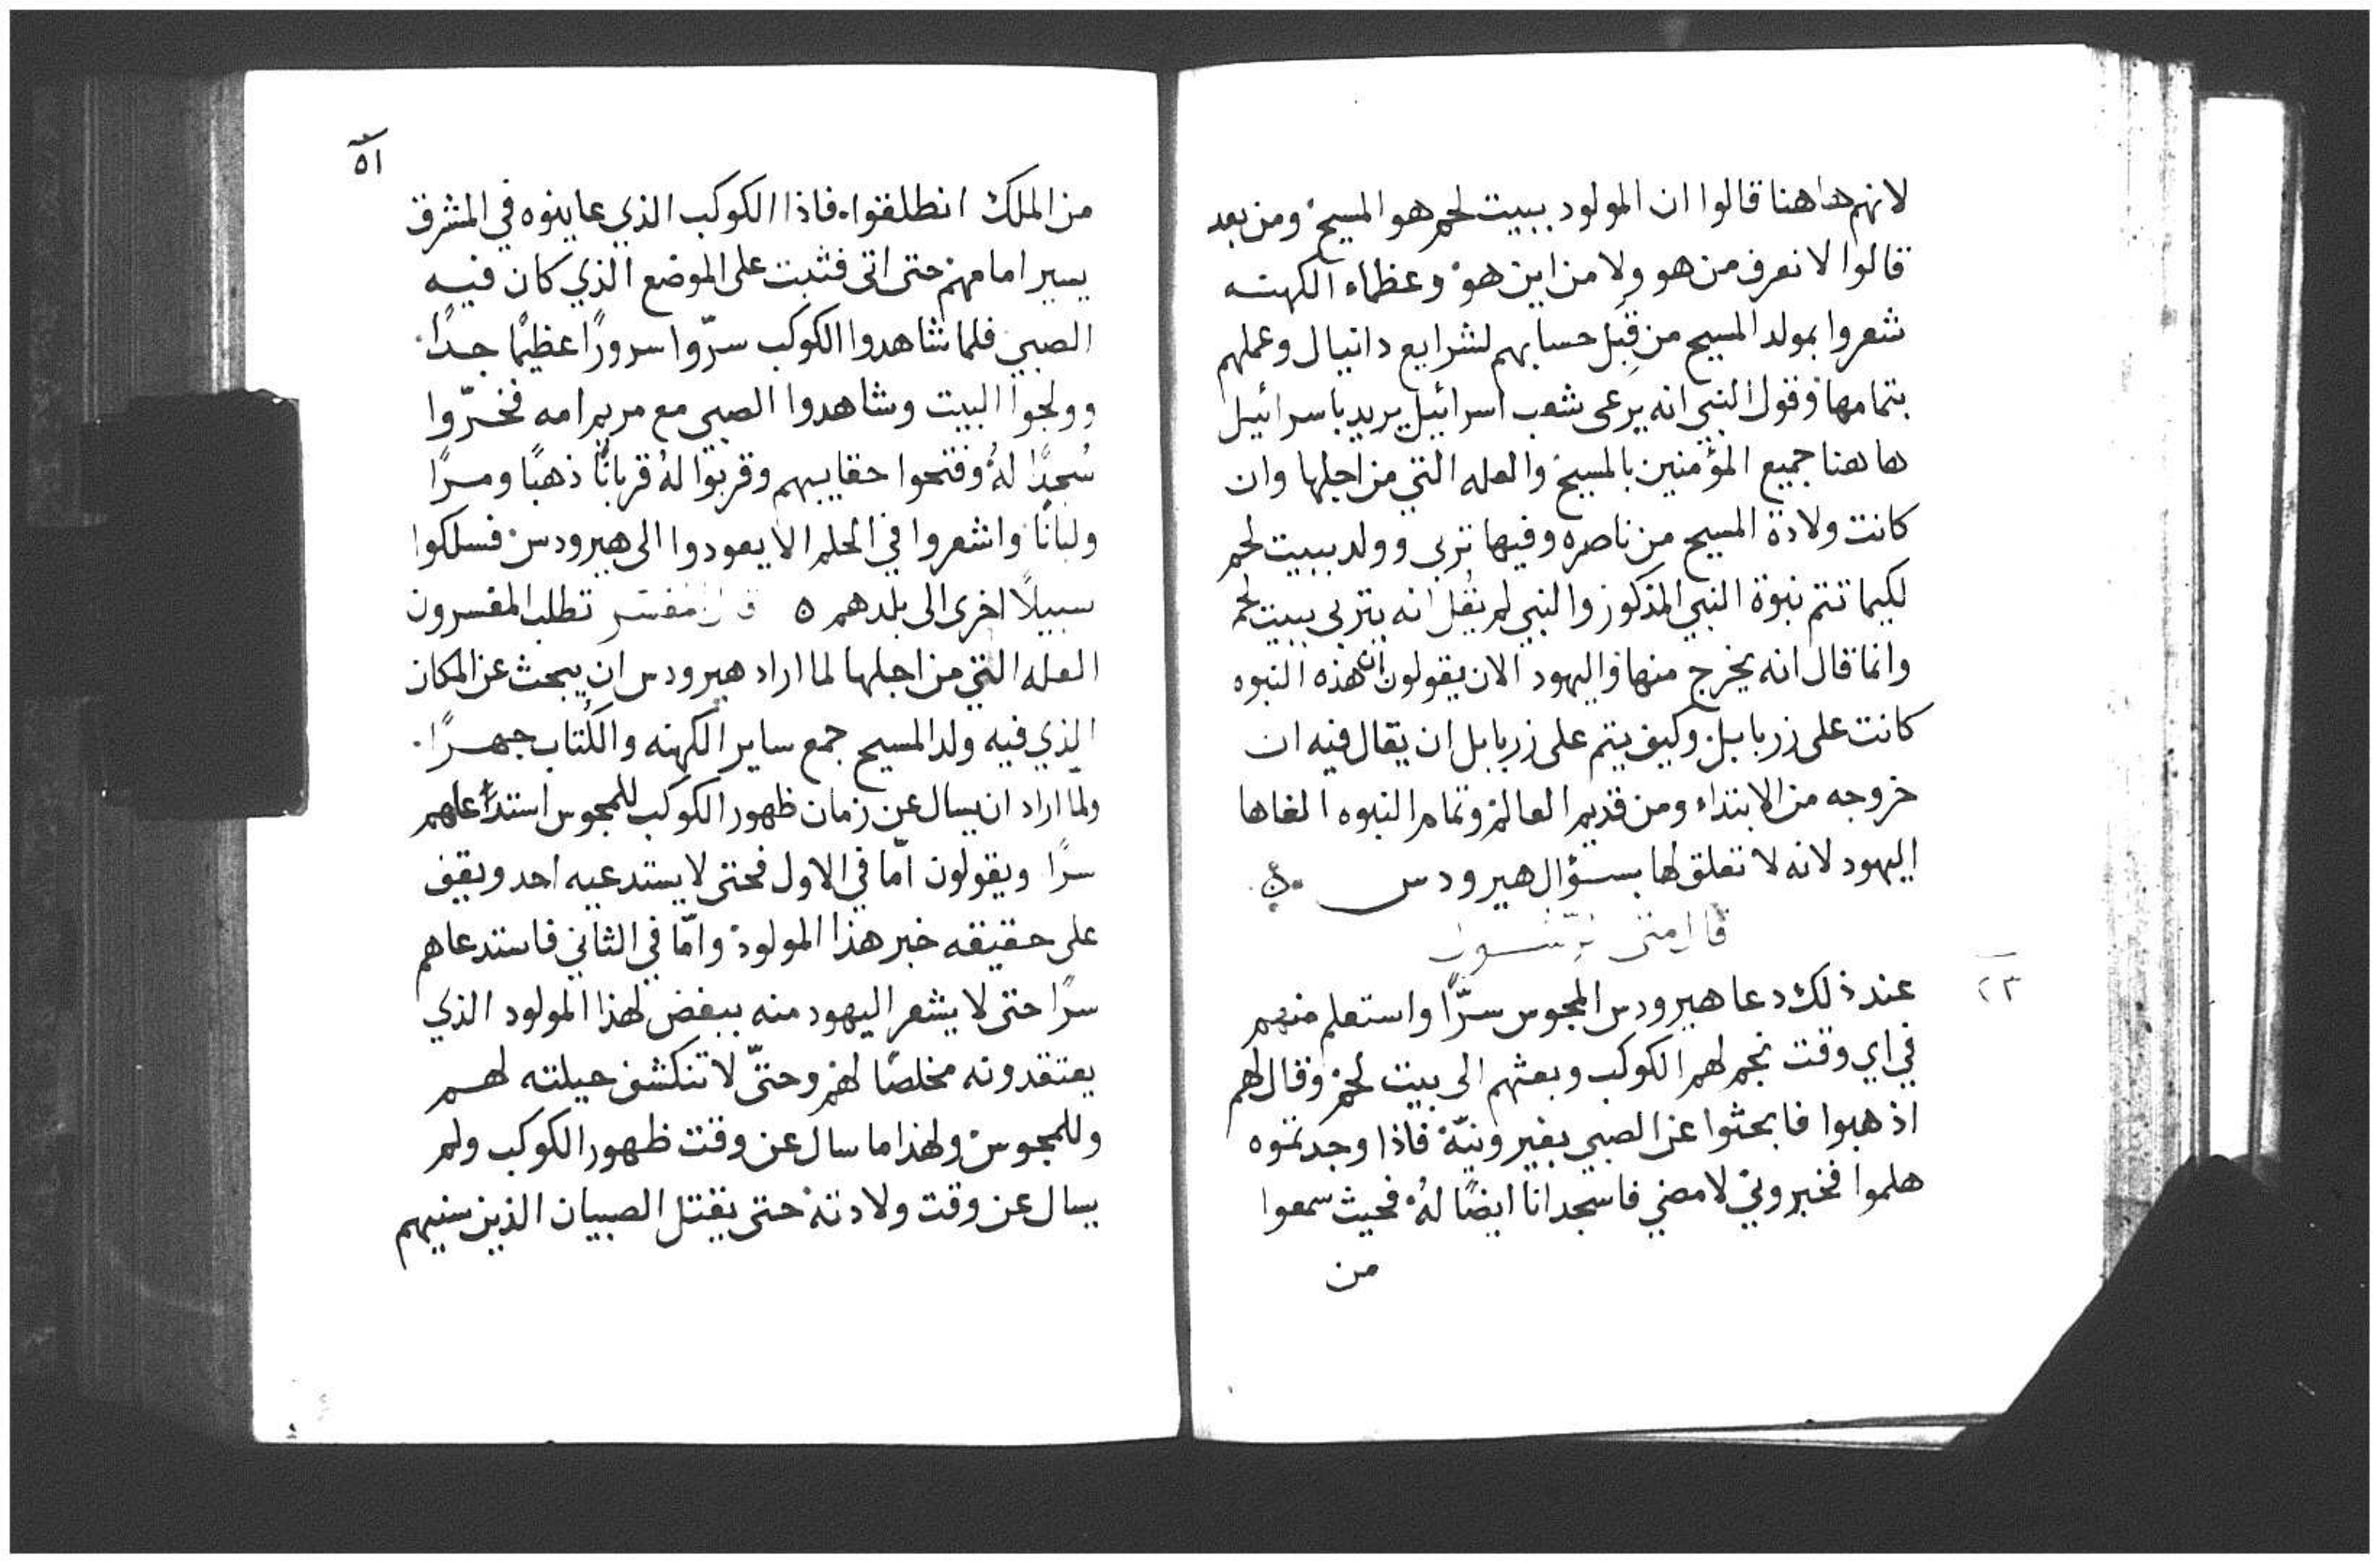 لانهم هاهنا قالوا ان المولود ببيت لحم هو المسيح ومن بعد
قالوا لا نعرف من هو ولا من اين هو وعظماء الكهنه
شعروا بمولد المسيح من قِبَل حسابهم لشرايع دانيال وعملهم
بتمامها وقول النبي انه يرعى شعب اسرائيل يريد باسرائيل
هاهنا جميع المؤمنين بالمسيح والعله التي من اجلها وان
كانت ولادة المسيح من ناصره وفيها تربى وولد ببيت لحم
لكيما تتم نبوة النبي المذكور والنبي لم يقُل انه يتربى ببيت لحم
وانما قال انه يخرج منها واليهود الان يقولون ان هذه النبوه
كانت على زربابل وكيف يتم على زربابل ان يقال فيه ان
خروجه من الابتداء ومن قديم العالم وتمام النبوه الغاها
اليهود لانه لا تعلق لها بسؤال هيرودس ٥
قال متى
٢٣
عند ذلك دعا هيرودس المجوس سرًّا واستعلم منهم
في اي وقت نجم لهم الكوكب وبعثهم الى بيت لحم وقال لهم
اذهبوا فابحثوا عن الصبي بغير ونيّة فاذا وجدتموه
هلموا فخبروني لامضي فاسجد انا ايضًا لهُ فحيث سمعوا
من
٥١
من الملك انطلقوا فاذا الكوكب الذي عاينوه في المشرق
يسير امامهم حتى اتى فثبت على الموضع الذي كان فيه
الصبي فلما شاهدوا الكوكب سرّوا سرورًا عظيمًا جدًا
وولجوا البيت وشاهدوا الصبي مع مريم امه فخرّوا
سُجدًا لهُ وفتحوا حقايبهم وقربوا لهُ قربانًا ذهبًا ومرًا
ولبانًا واشعروا في الحلم الا يعودوا الى هيرودس فسلكوا
سبيلًا اخرى الى بلدهم ٥ قال المفسر تطلب المفسرون
العله التي من اجلها لما اراد هيرودس ان يبحث عن المكان
الذي فيه ولد المسيح جمع ساير الكهنه والكُتاب جهرًا
ولمّا اراد ان يسال عن زمان ظهور الكوكب للمجوس استدعاهم
سرًا ويقولون امّا في الاول فحتى لا يستدعيه احد ويقف
على حقيقه خبر هذا المولود وامّا في الثاني فاستدعاهم
سرًا حتى لا يشعر اليهود منه ببغض لهذا المولود الذي
يعتقدونه مخلصًا لهم وحتّى لا تنكشف حيلته لهم
وللمجوس ولهذا ما سال عن وقت ظهور الكوكب ولم
يسال عن وقت ولادته حتى يقتل الصبيان الذين سنيهم